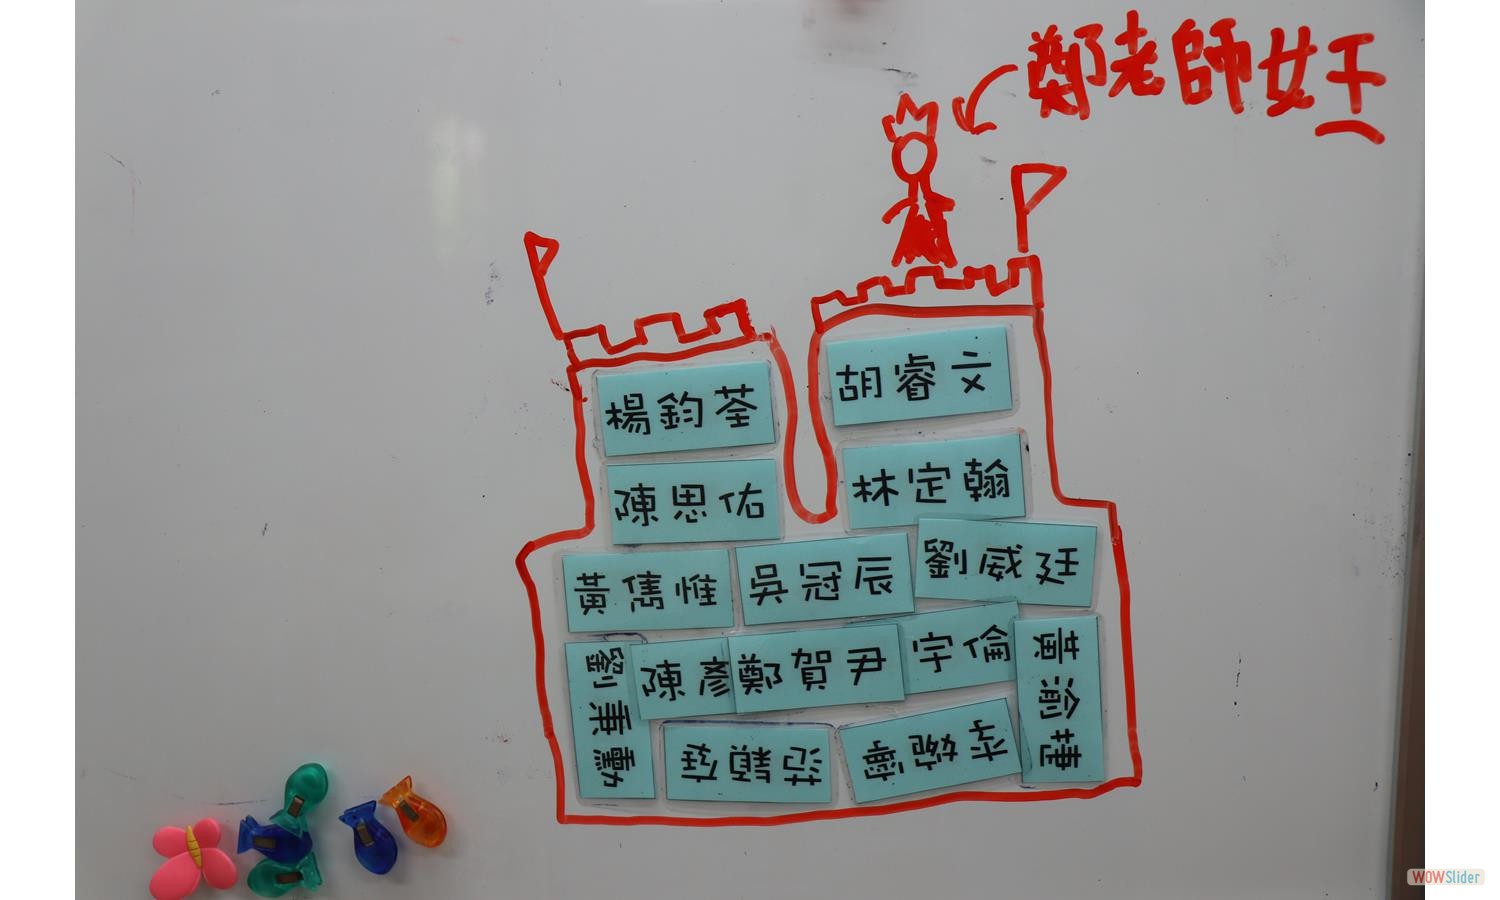 鄭老師女王
胡睿文
楊鈞荃
林定翰
陳思佑
劉威廷
黃雋惟
吳冠辰
宇倫
陳彥
鄭賀尹
劉秉勳
黃渝捷
WOWSlider